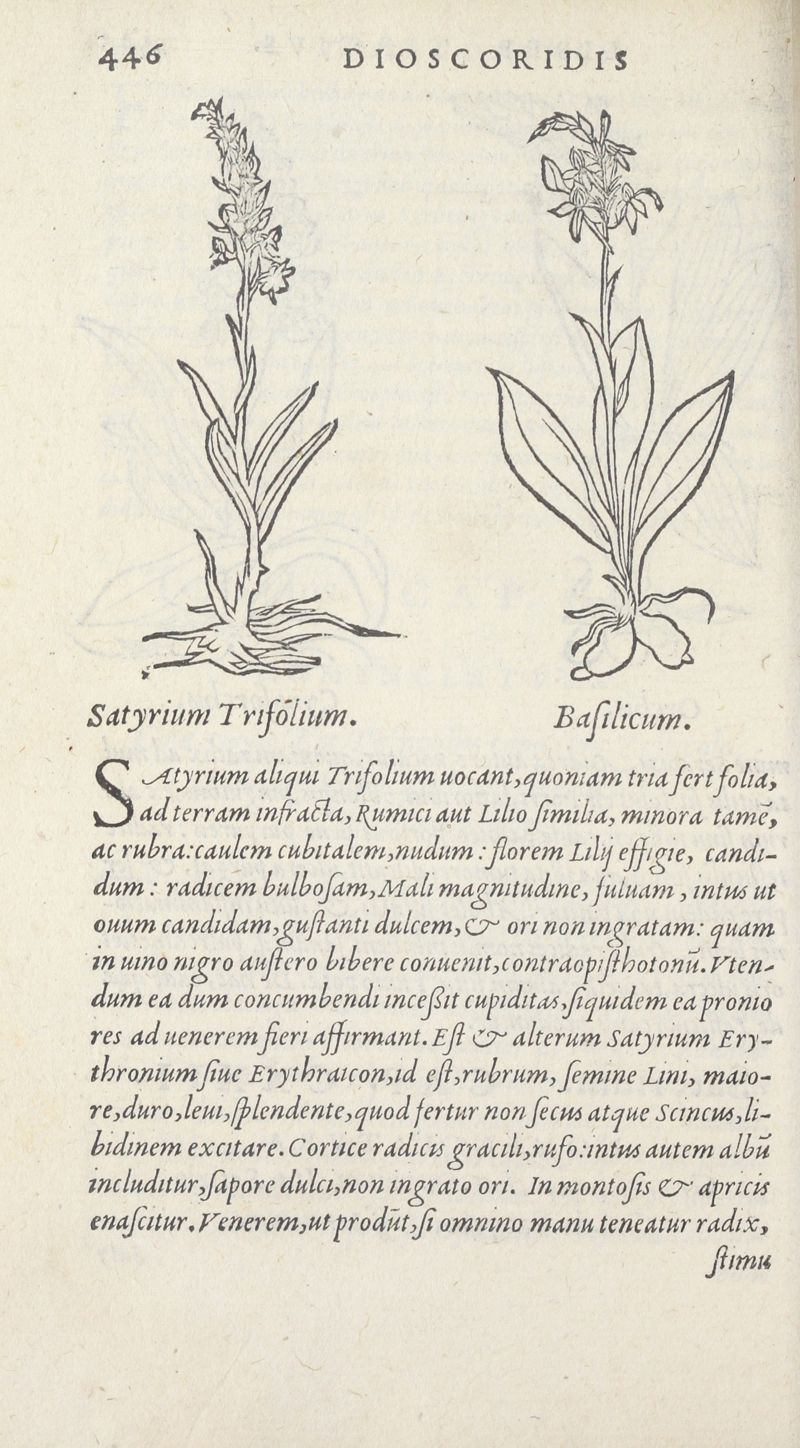 446 DIOSCORIDIS
Satyrium Trifolium. Baſilicum.
SAtyrium aliqui Trifolium uocant,quoniam tria fert folia,
ad terram infracta, Rumici aut Lilio ſimilia, minora tamẽ,
ac rubra:caulem cubitalem,nudum : florem Lilij effigie, candi-
dum : radicem bulboſam,Mali magnitudine, fuluam , intus ut
ouum candidam,guſtanti dulcem,& ori non ingratam: quam
in uino nigro auſtero bibere conuenit,contra opiſthotonũ. Vten-
dum ea dum concumbendi inceßit cupiditas,ſiquidem ea pronio
res ad uenerem fieri affirmant. Eſt & alterum Satyrium Ery-
thronium ſiue Erythraicon,id eſt,rubrum, ſemine Lini, maio-
re,duro,leui,ſplendente,quod fertur non ſecus atque Scincus,li-
bidinem excitare. Cortice radicis gracili,rufo:intus autem albũ
includitur,ſapore dulci,non ingrato ori. In montoſis & apricis
enaſcitur. Venerem,ut prodũt,ſi omnino manu teneatur radix,
ſtimu